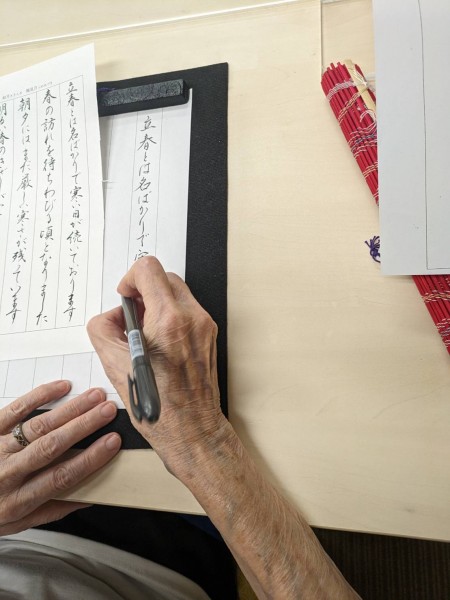 立春とは名ばかりで
立春とは名ばかりで寒い日が続いております
春の訪れを待ちわびる頃となりました
朝夕にはまだ厳しい寒さが残っています